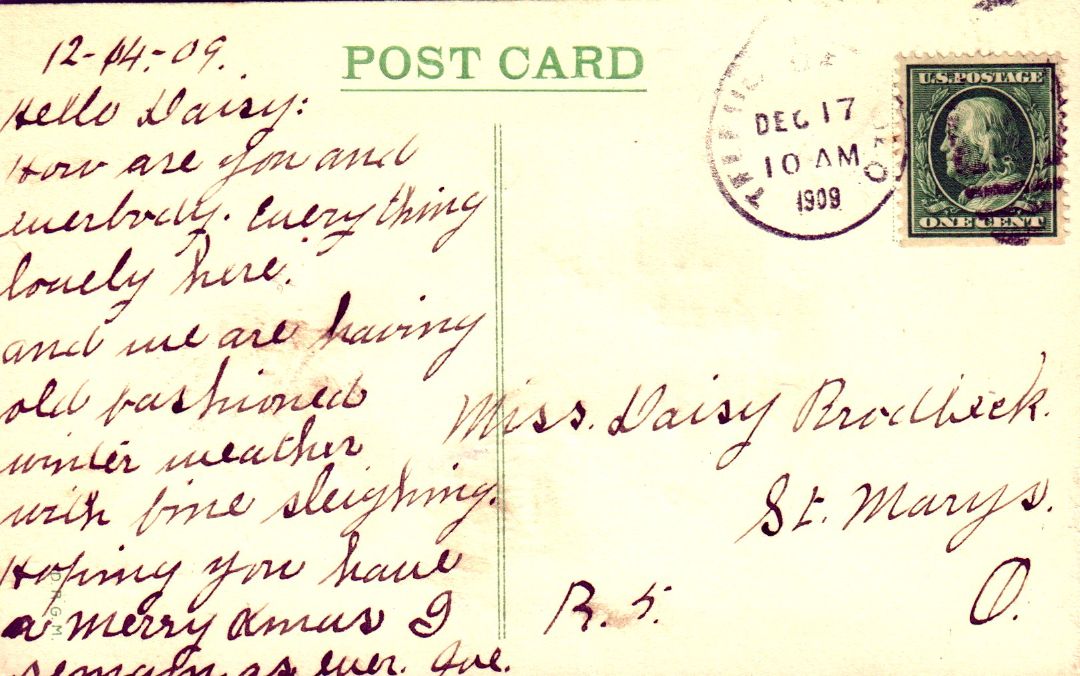 12-14-09.
POST CARD
Hello Daisy:
How are you and
everbody. Everything
lovely here.
and we are having
old fashioned
winter weather
with fine sleighing.
Hoping you have
a merry Xmas I
remain as ever. Joe.
DEC 17
10 AM
1909
U.S. POSTAGE
ONE CENT
Miss. Daisy Brodbeck.
St. Marys.
O.
R. 5.